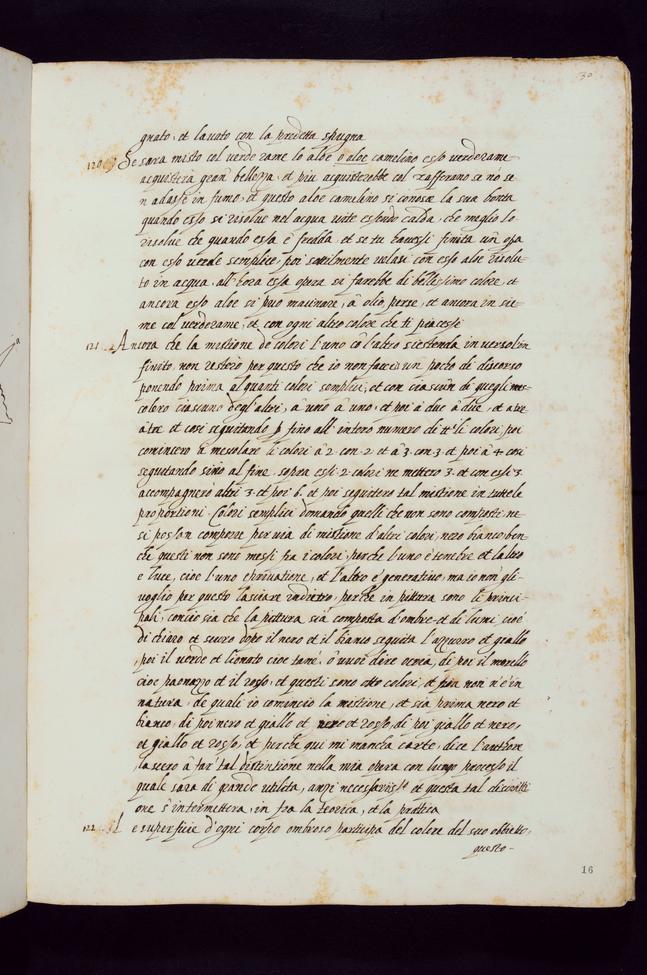 30
gnato, et lavato con la predetta spugna
120. Se sara misto col verde rame lo aloe o aloe camelino esso verderame
acquistera gran bellezza, et piu acquisterebbe col zafferano se no se
n adasse in fumo, et questo aloe camelino si conosce la sua bonta
quando esso si risolve nel acqua vite essendo calda, che meglio lo
risolve che quando essa è fredda, et se tu havessi finita un opa
con esso verde semplice, poi sottilmente velasi con esso aloe risolu-
to in acqua, all'hora essa opera si farebbe di bellissimo colore, et
ancora esso aloe si puo macinare, à olio, perse, et ancora insie-
me col verderame, et con ogni altro colore che ti piacesse
121. Ancora che la mistione de colori l'uno co l'altro s'estenda inverso l'in
finito, non restero per questo che io non faccia un pocho di discorso
ponendo prima alquanti colori semplici, et con ciascun di quegli mes
colero ciascuno degl'altri, à uno à uno, et poi à due à due, et a tre
à tre, et così seguitando p fino all' intero numero di tt.i li colori, poi
comincero à mescolare li colori à 2 con 2 et à 3 con 3 et poi à 4 cosi
seguitando sino al fine, sopra essi 2 colori ne mettero 3 et con essi 3
accompagnerò altri 3 et poi 6. et poi seguitero tal mistione in tutte le
proportioni. Colori semplici domando quelli che non sono composti, ne
si posson comporre per via di mistione d'altri colori, nero bianco ben
che questi non sono messi fra i colori, perche l'uno è tenebre et l'altro
e luce, cioe l'uno e privatione, et l'altro e' generativo, ma io non gli
voglio per questo lasciare indietro, perche in pittura sono li princi-
pali, concio sia che la pittura sia composta d'ombre et di lumi, cioè
di chiaro et scuro dopo il nero et il bianco seguita l'azzurro et giallo
, poi il verde et lionato cioe tanè, ò vuoi dire ocria, di poi il morello
cioe paonazzo et il rosso, et questi sono otto colori, et piu non n'è in
natura, de quali io comincio la mistione, et sia prima nero et
bianco, di poi nero et giallo et nero et rosso, di poi giallo et nero,
et giallo et rosso, et perche qui mi manca carte, dice l'authore
lascero à far tal distintione nella mia opera con lungo processo il
quale sara di grande utilita, anzi necessariss.o et questa tal discritti
one s'intermettera, in fra la teorica, et la prattica
122. Le superficie d'ogni corpo ombroso participa del colore del suo obbietto,
questo-
16